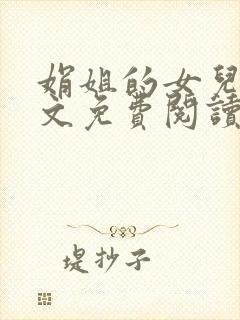 娟姐的女兒
文免費閱讀
堤抄子